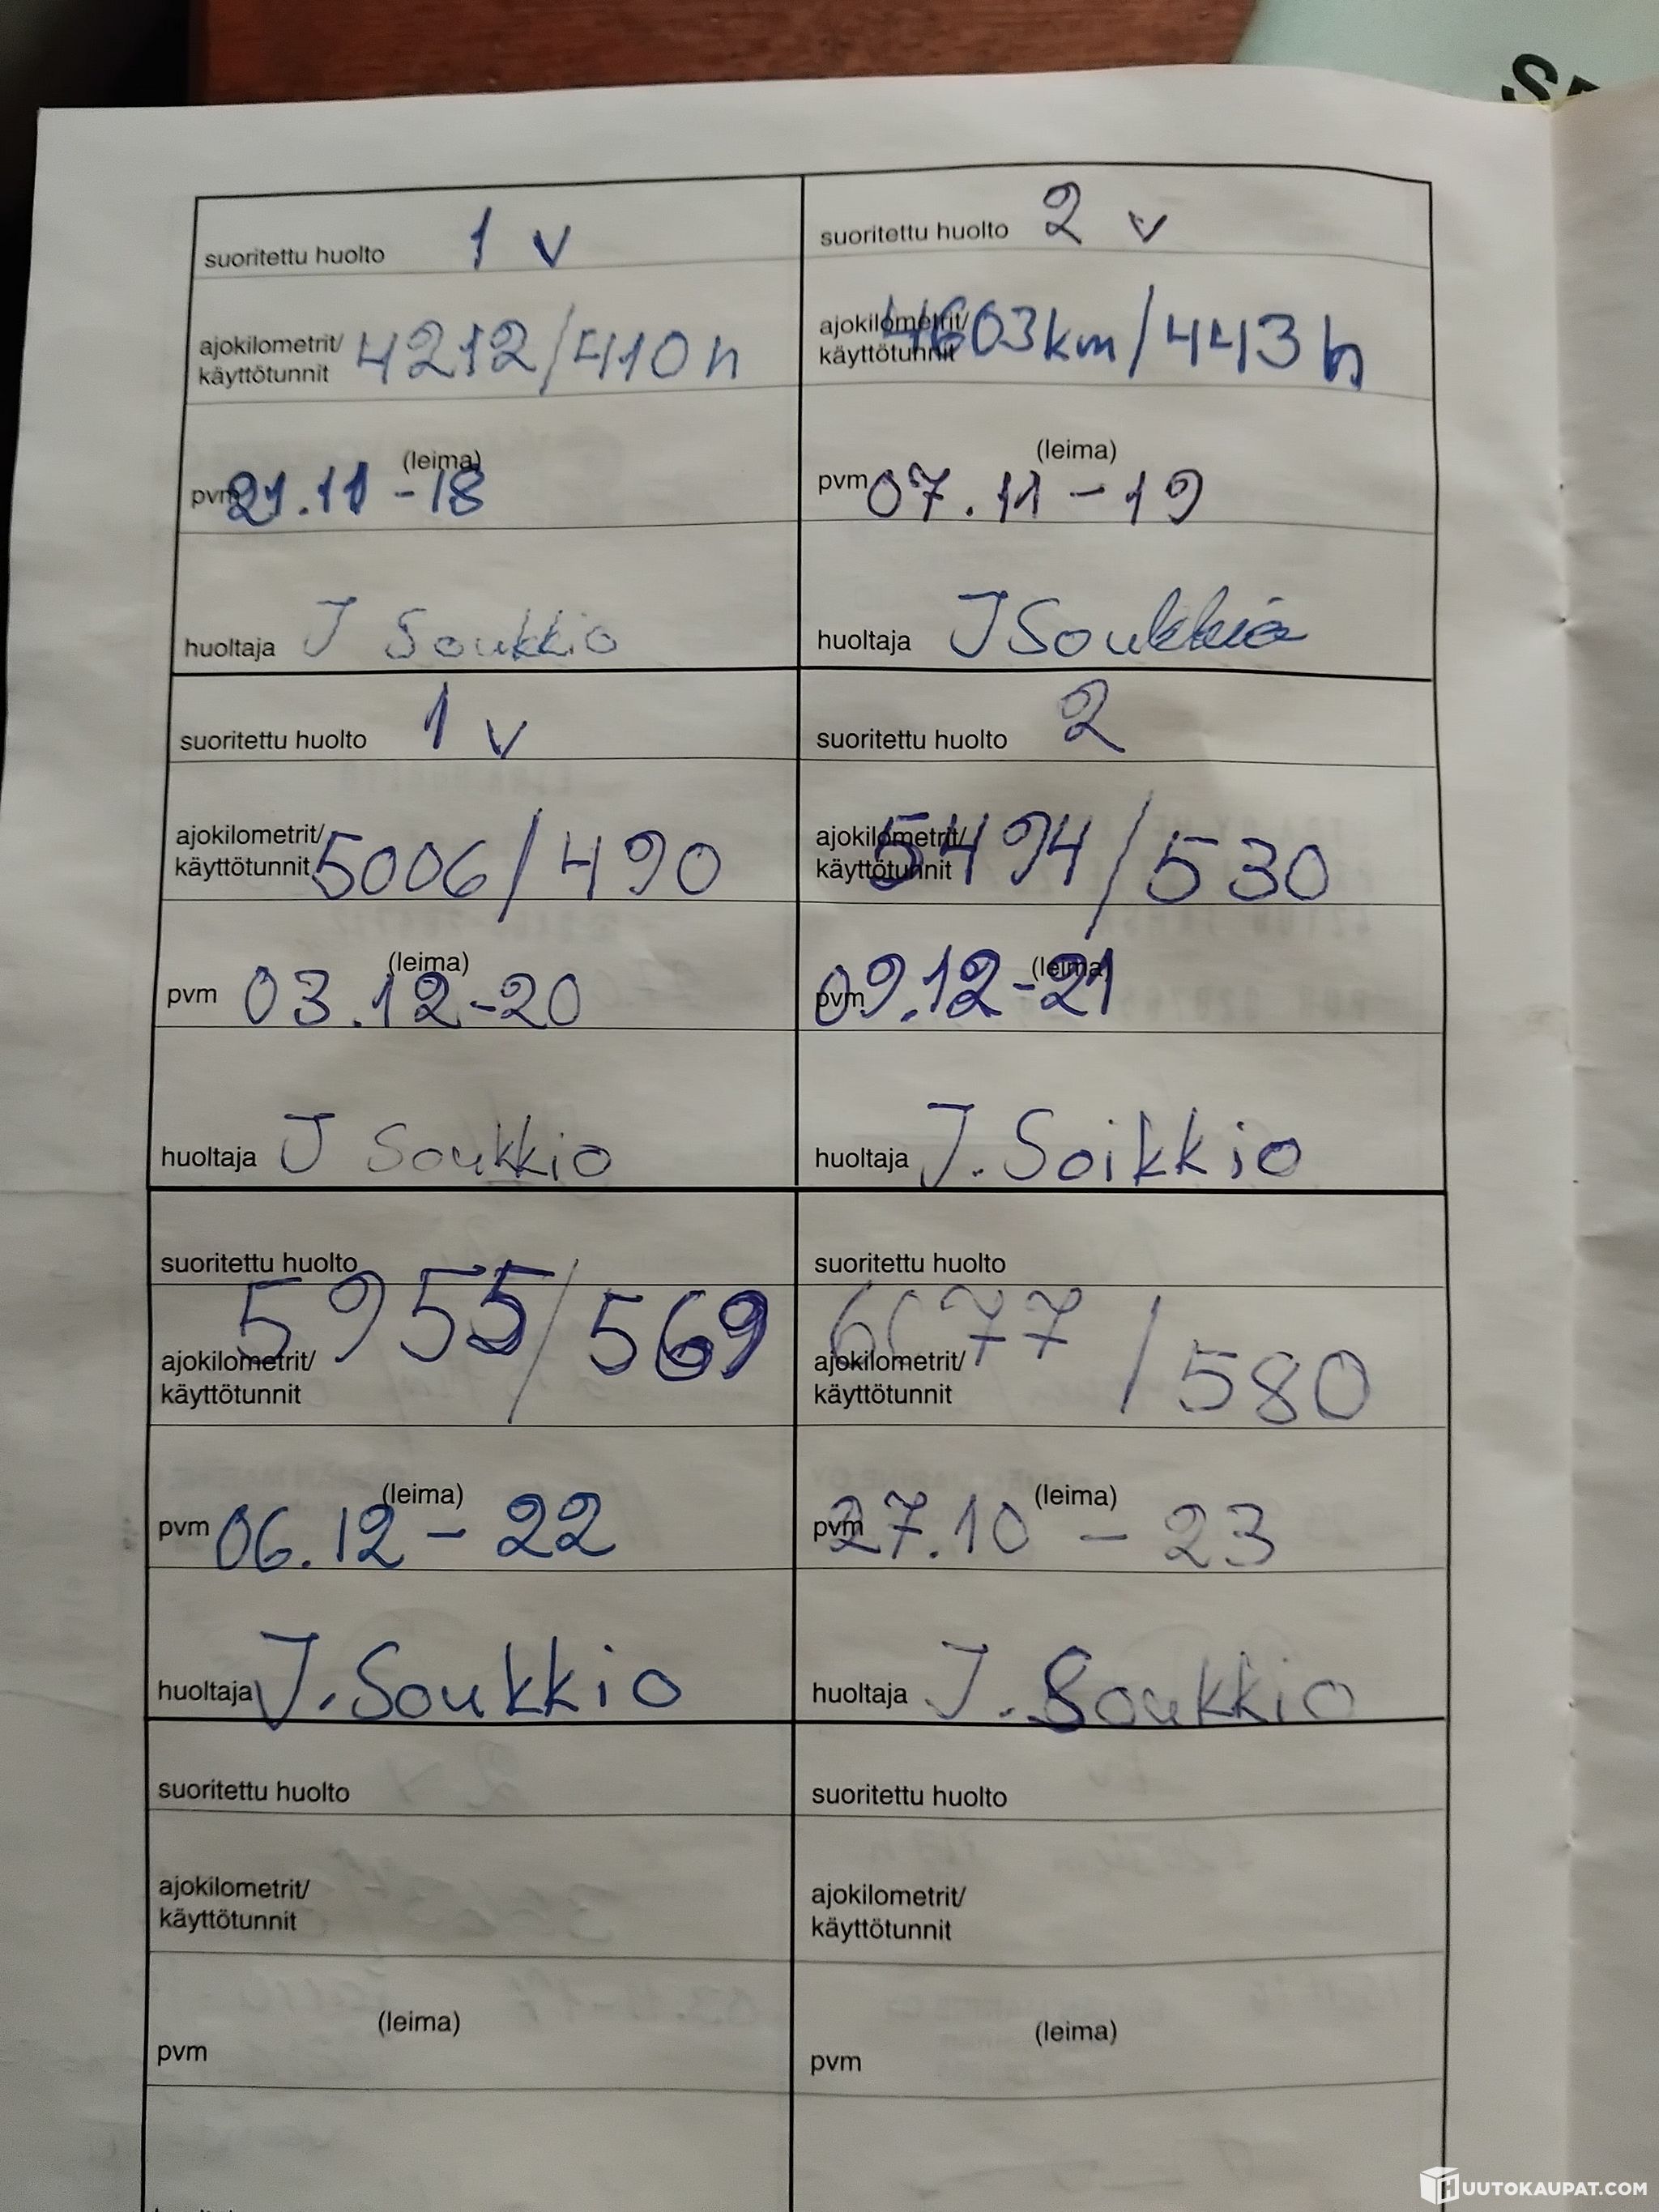 suoritettu huolto 1 v
ajokilometrit/
käyttötunnit 4212/410 h
(leima)
pvm 21.11 -18
huoltaja J Soukkio
suoritettu huolto 2 v
ajokilometrit/
käyttötunnit 4603km/443 h
(leima)
pvm 07.11-19
huoltaja J Soukkio
suoritettu huolto 1 v
ajokilometrit/
käyttötunnit 5006/490
(leima)
pvm 03.12-20
huoltaja J Soukkio
suoritettu huolto 2
ajokilometrit/
käyttötunnit 5494/530
(leima)
pvm 09.12-21
huoltaja J. Soikkio
suoritettu huolto
5955/569
ajokilometrit/
käyttötunnit
(leima)
pvm 06.12-22
huoltaja J. Soukkio
suoritettu huolto
6077/580
ajokilometrit/
käyttötunnit
(leima)
pvm 27.10-23
huoltaja J. Soukkio
suoritettu huolto
ajokilometrit/
käyttötunnit
(leima)
pvm
suoritettu huolto
ajokilometrit/
käyttötunnit
(leima)
pvm
HUUTOKAUPAT.COM